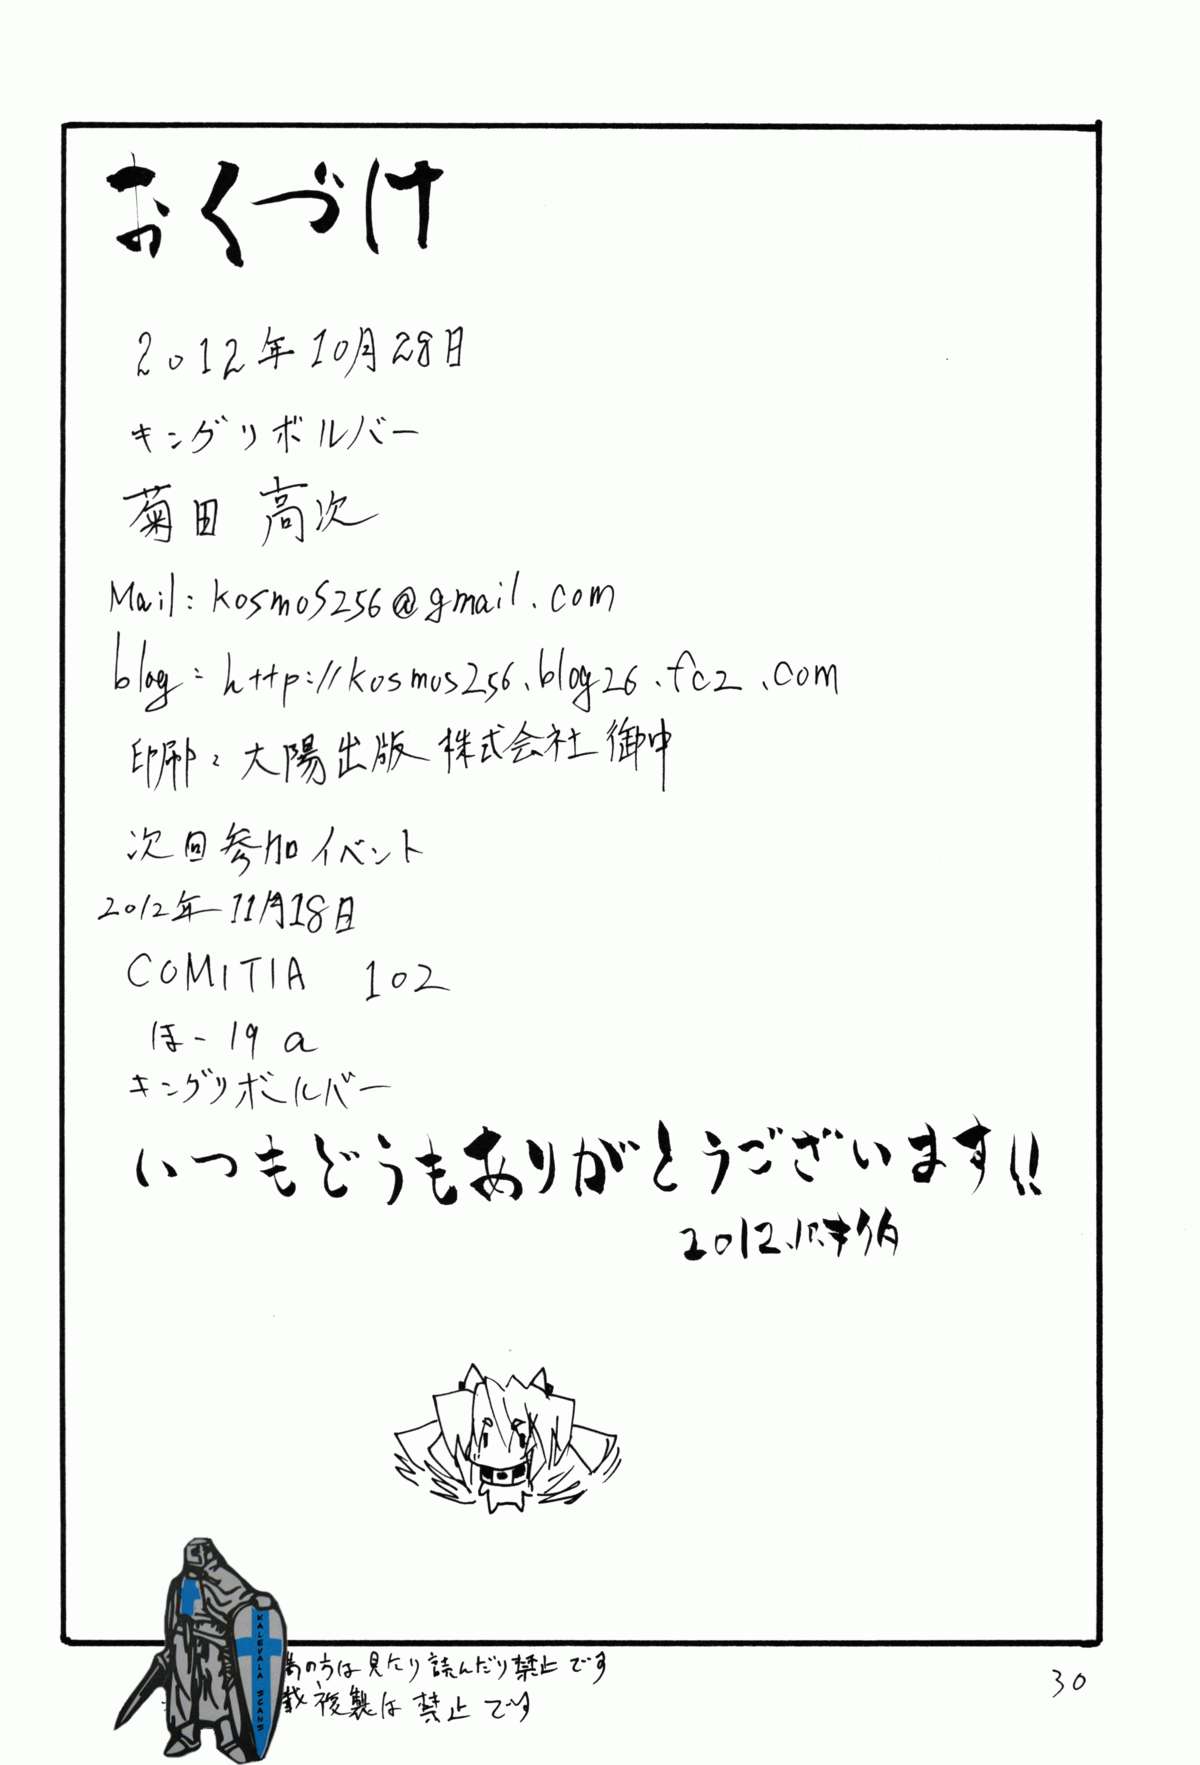 おくづけ
2012年10月28日
キングリボルバー
菊田 高次
Mail: kosmos256@gmail.com
blog: http://kosmos256.blog26.fc2.com
印刷: 大陽出版 株式会社 御中
次回参加イベント
2012年11月18日
COMITIA 102
ほ-19a
キングリボルバー
いつもどうもありがとうございます!!
2012.
KALEVALA SCANS
の方は見たり読んだり禁止です
載複製は禁止です
30